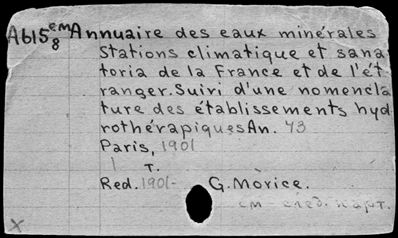 A615 8 em Annuaire des eaux minérales
Stations climatique et sana
toria de la France et de l'ét
ranger. Suivi d'une nomencla
ture des établissements hyd
rothérapiques An. 43
Paris, 1901
1 т.
Red. 1901- G. Morice.
см след. карт.
x